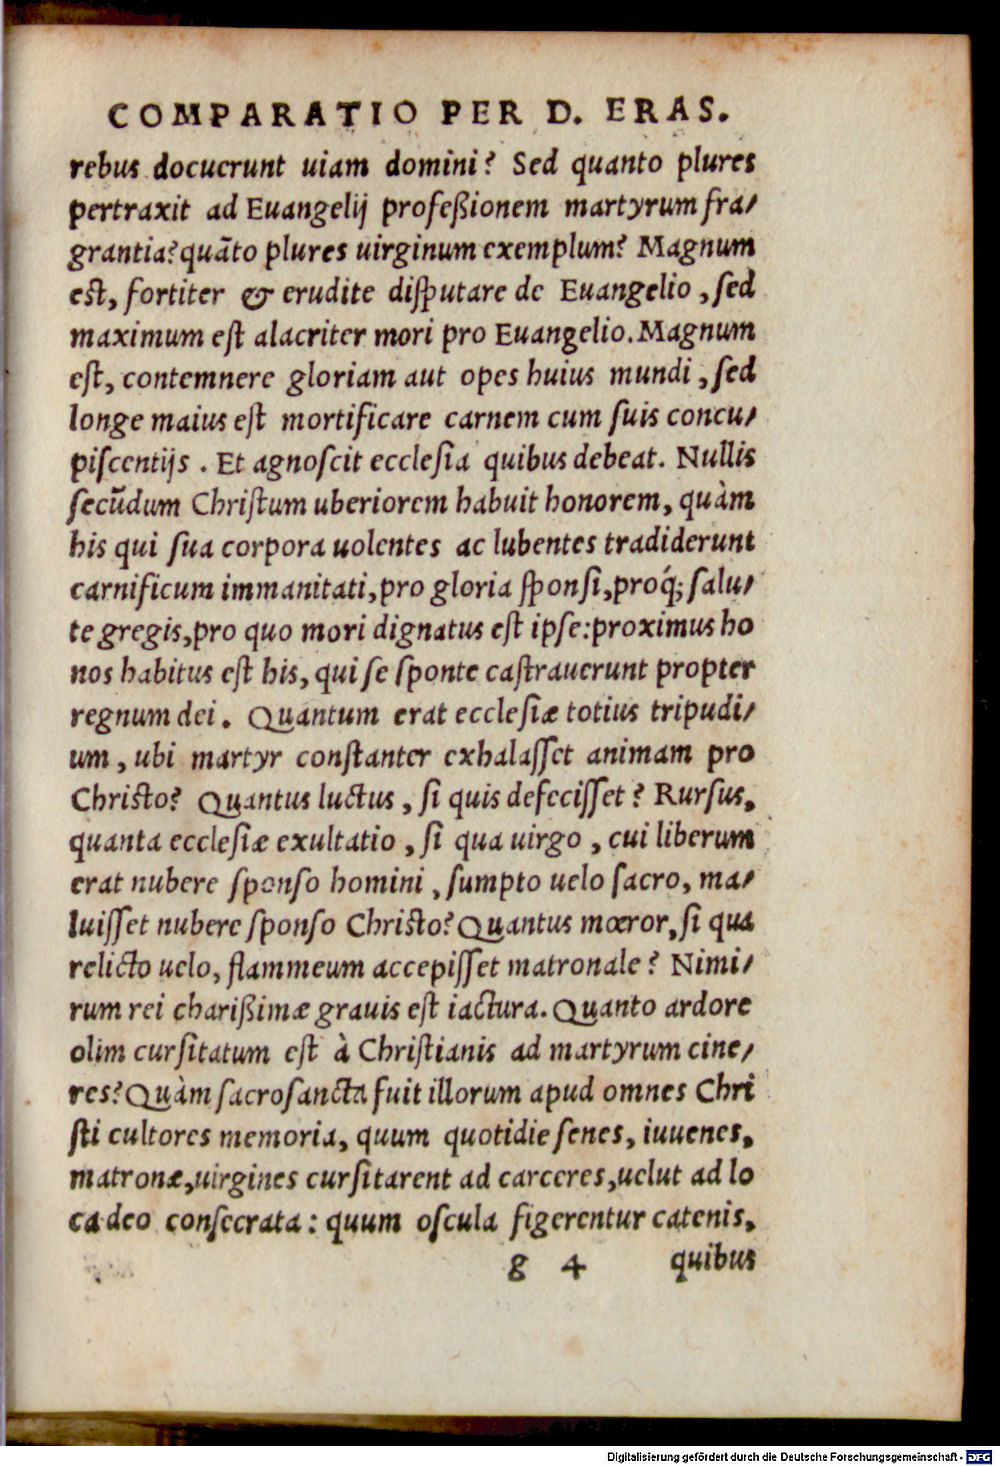 COMPARATIO PER D. ERAS.
rebus docuerunt uiam domini? Sed quanto plures
pertraxit ad Euangelij profeßionem martyrum fra/
grantia? quãto plures uirginum exemplum? Magnum
est, fortiter & erudite diſputare de Euangelio, ſed
maximum eſt alacriter mori pro Euangelio. Magnum
eſt, contemnere gloriam aut opes huius mundi, ſed
longe maius eſt mortificare carnem cum ſuis concu/
piſcentijs. Et agnoſcit eccleſia quibus debeat. Nullis
ſecũdum Chriſtum uberiorem habuit honorem, quàm
his qui ſua corpora uolentes ac lubentes tradiderunt
carnificum immanitati, pro gloria ſponſi, proq́; ſalu/
te gregis, pro quo mori dignatus eſt ipſe: proximus ho
nos habitus eſt his, qui ſe ſponte caſtrauerunt propter
regnum dei. Quantum erat eccleſiæ totius tripudi/
um, ubi martyr conſtanter exhalaſſet animam pro
Chriſto? Quantus luctus, ſi quis defeciſſet? Rurſus,
quanta eccleſiæ exultatio, ſi qua uirgo, cui liberum
erat nubere ſponſo homini, ſumpto uelo ſacro, ma/
luiſſet nubere ſponſo Chriſto? Quantus mœror, ſi qua
relicto uelo, flammeum accepiſſet matronale? Nimi/
rum rei charißimæ grauis eſt iactura. Quanto ardore
olim curſitatum eſt à Chriſtianis ad martyrum cine/
res? Quàm ſacroſancta fuit illorum apud omnes Chri
ſti cultores memoria, quum quotidie ſenes, iuuenes,
matronæ, uirgines curſitarent ad carceres, uelut ad lo
ca deo conſecrata: quum oſcula figerentur catenis,
g 4 quibus
Digitalisierung gefördert durch die Deutsche Forschungsgemeinschaft - DFG